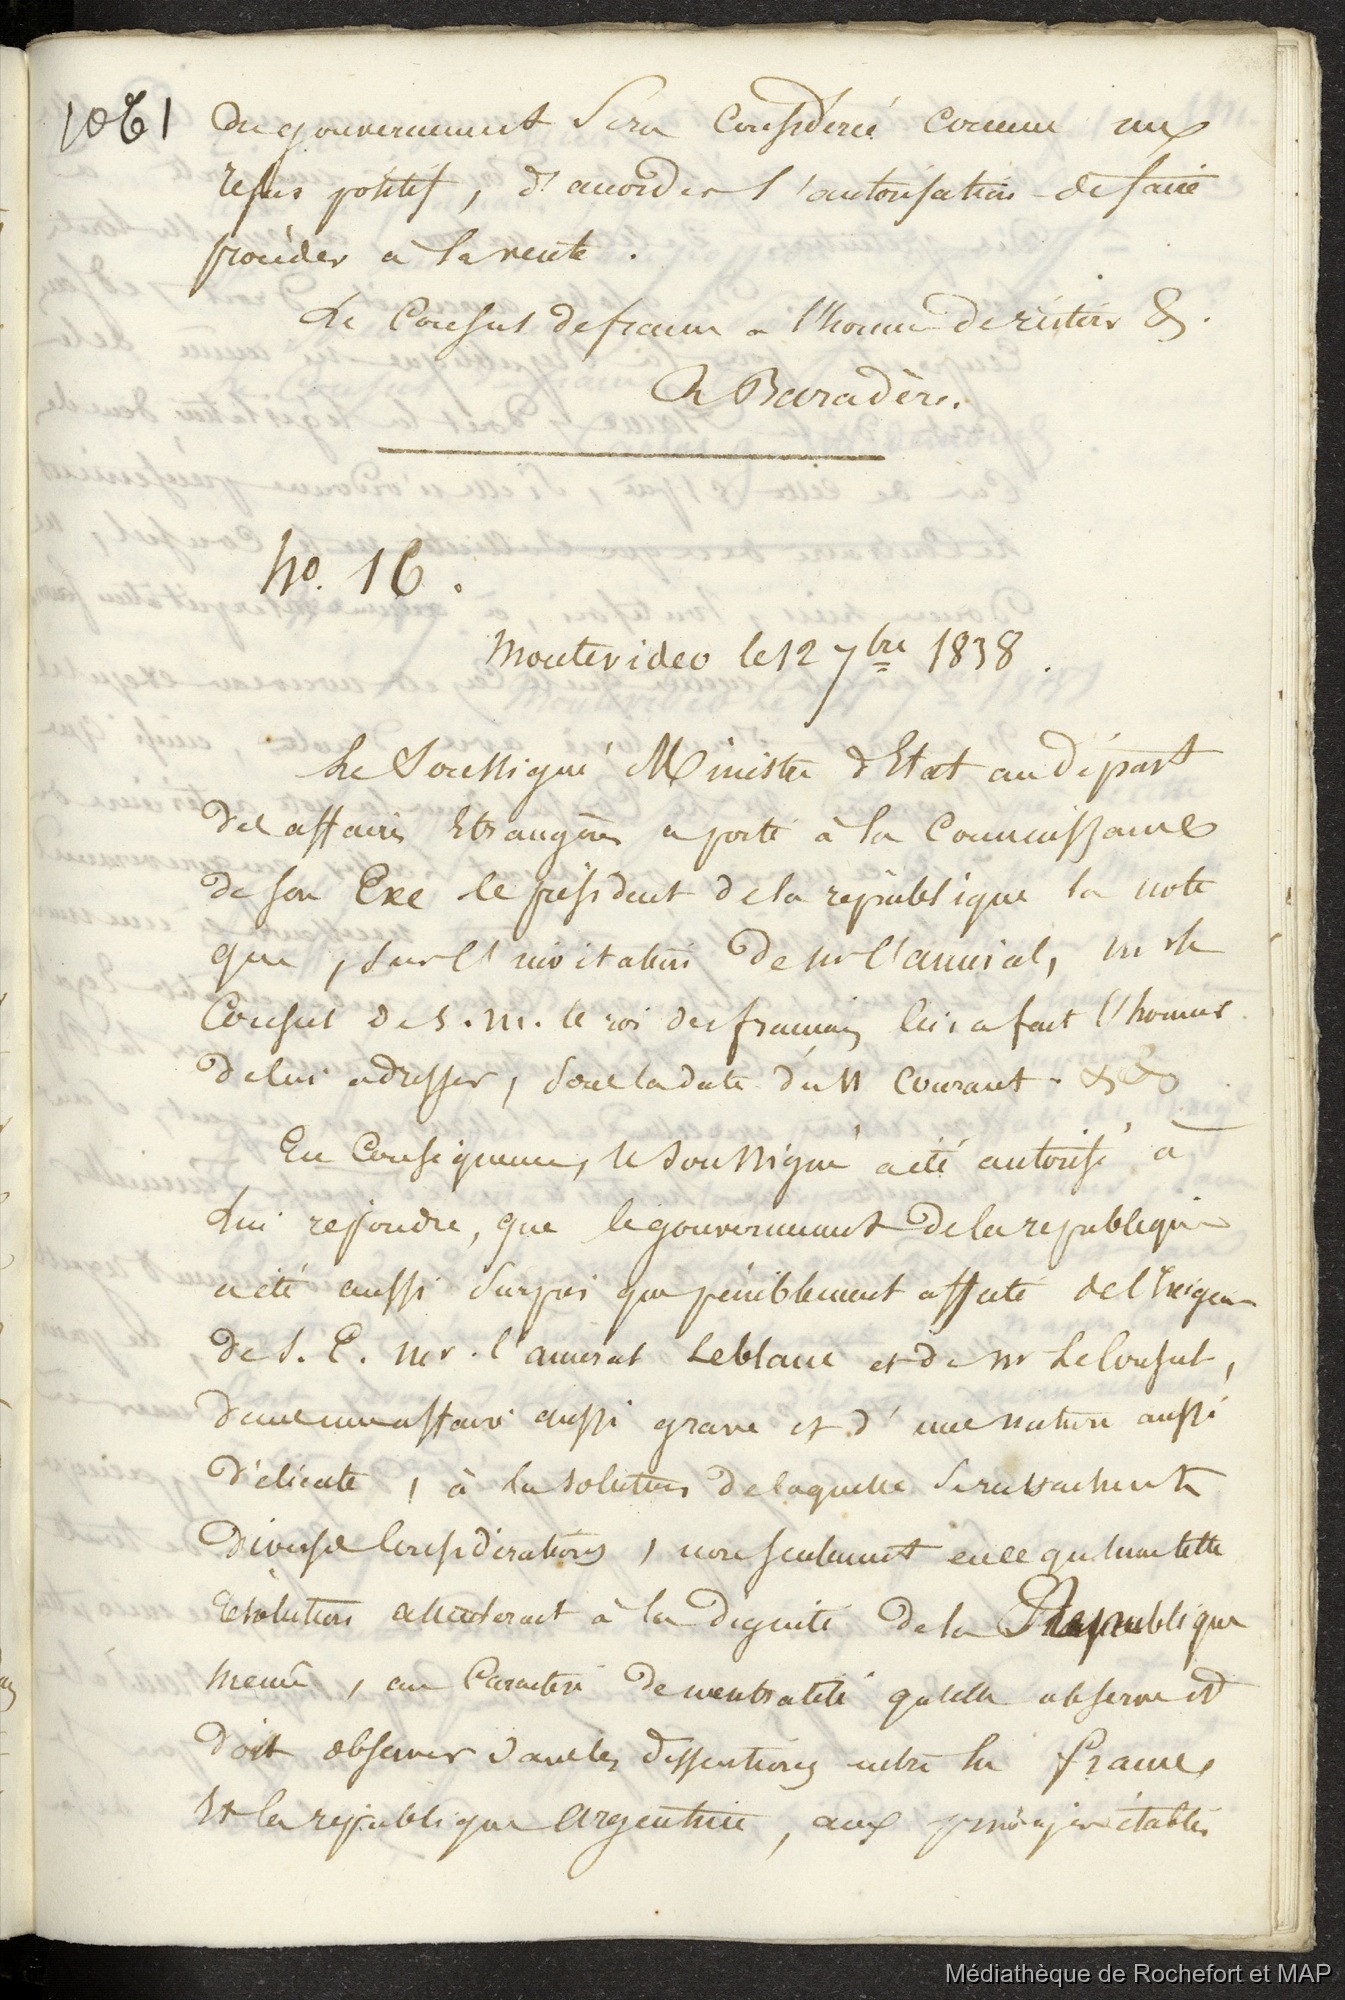 1061
du gouvernement sera considéré comme un
refus positif, d'accorder l'autorisation de faire
procéder à la vente.
Le Consul de france a l'honneur de réitérer &.
R Baradère.
No. 16.
Montevideo le 12 7bre 1838.
Le Soussigné Ministre d'Etat au Départ
des affaires Etrangères a porté à la Connaissance
de son Exe le président de la république la note
que, sur l'invitation de Mr l'amiral, M le
Consul de S. M. le roi des français lui a fait l'honneur
de lui adresser, sous la date du 11 courant. &&
En Conséquence, le soussigné a été autorisé à
lui répondre, que le gouvernement de la republique
a été aussi surpris que péniblement affecté de l'exigence
de S. E. Mr. l'amiral Leblanc et de Mr Le Consul,
dans une affaire aussi grave et d'une nature aussi
délicate, à la solution de laquelle se rattachent
diverses Considérations, non seulement en ce que cette
résolution attenterait à la dignité de la République
meme, au Caractère de neutralité qu'elle observe et
doit observer dans les dissentions entre la france
et la république argentine, aux principes établis
Médiathèque de Rochefort et MAP